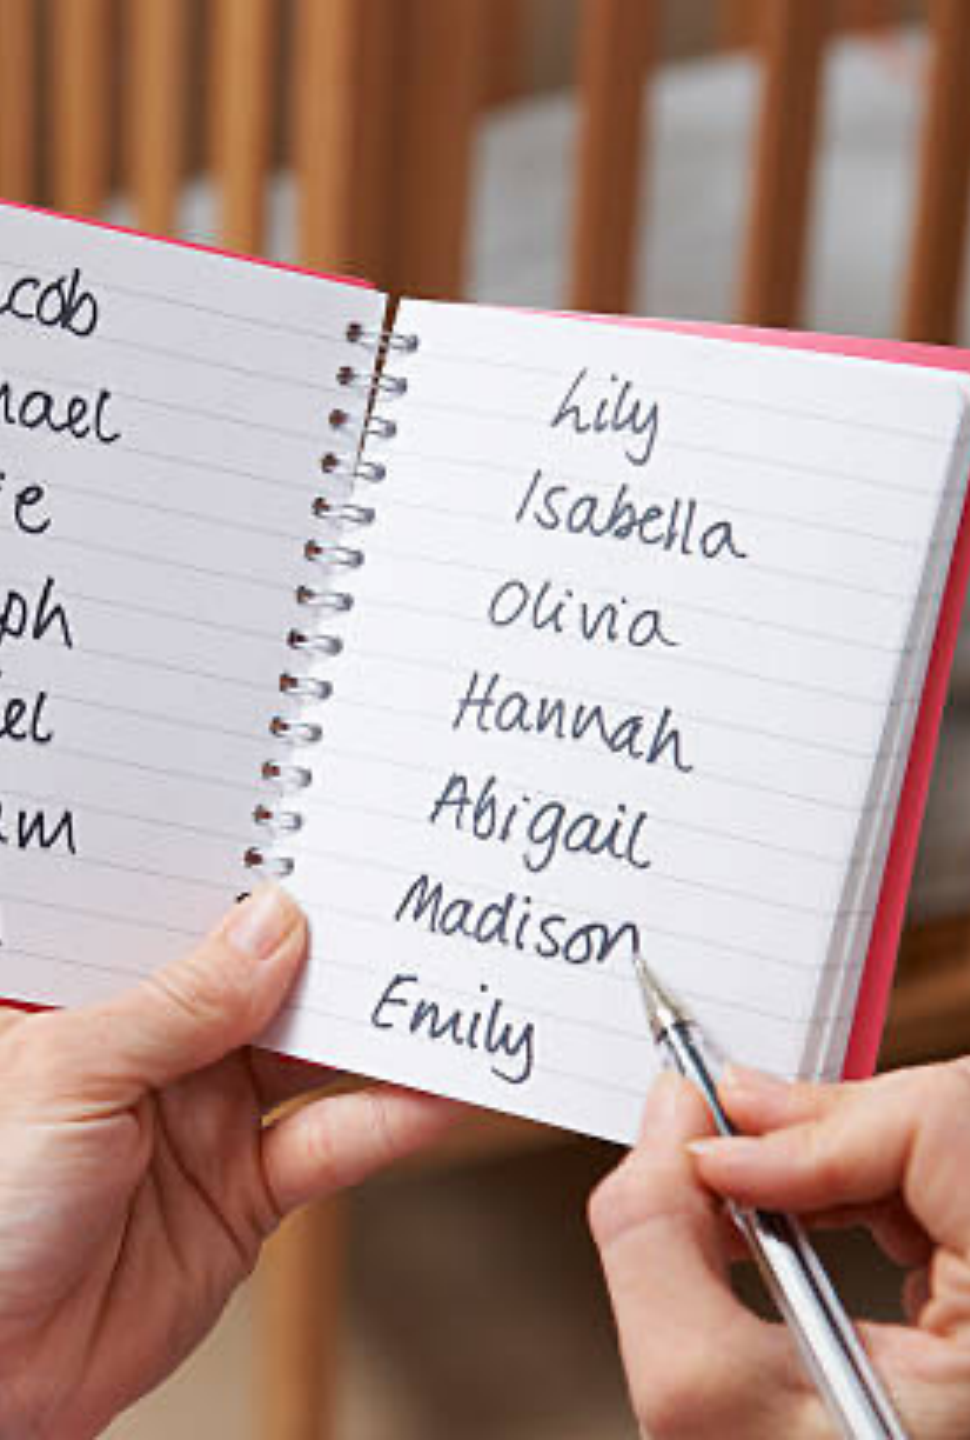 cob
hael
ie
ph
iel
am
Lily
Isabella
Olivia
Hannah
Abigail
Madison
Emily